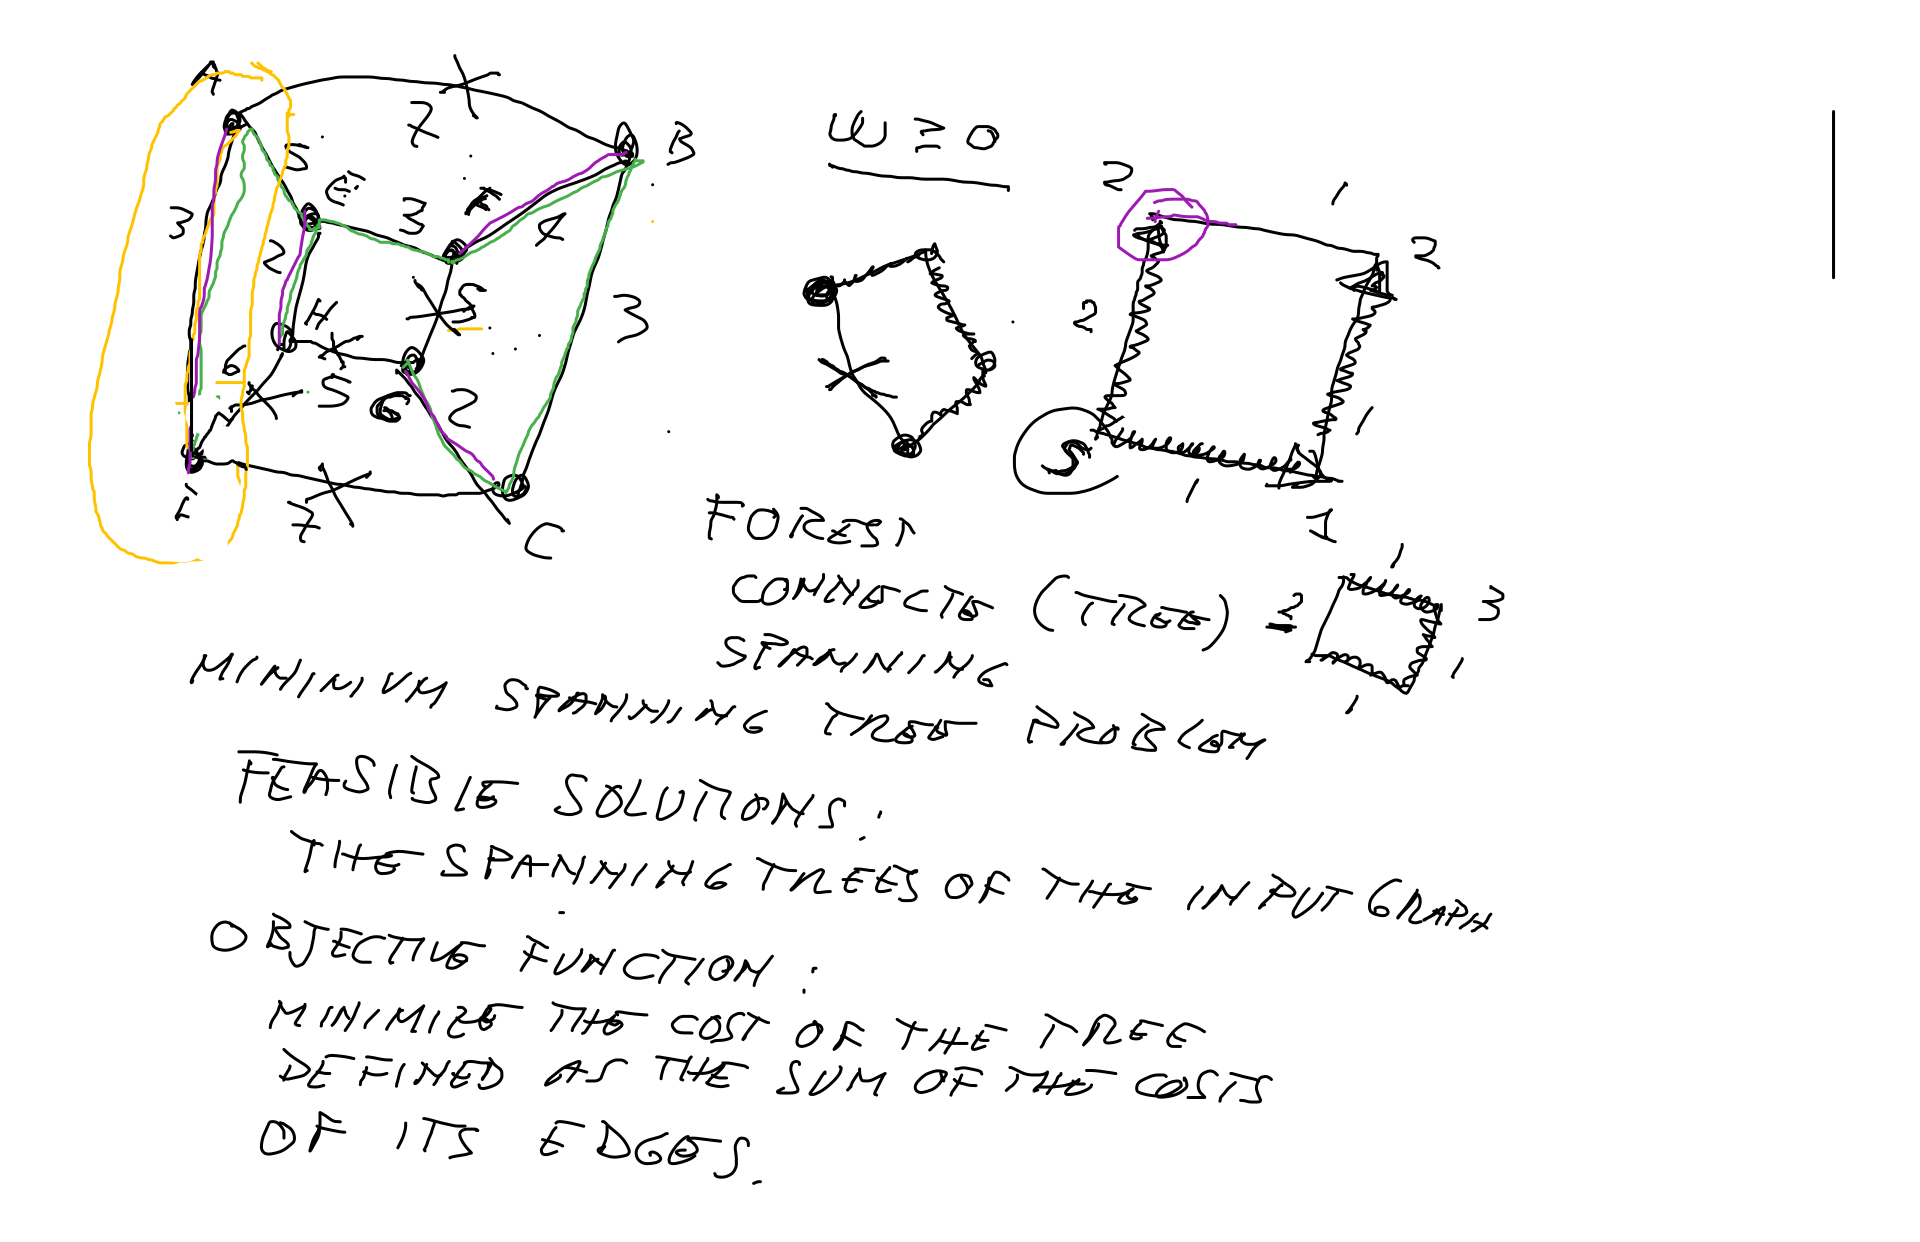 A
7
B
5
E
3
F
4
3
2
H
5
3
6
5
G
2
7
C
W ≥ 0
2
1
2
2
1
S
1
1
FOREST
CONNECTE (TREE)
SPANNING
1
2
3
1
1
MINIMUM SPANNING TREE PROBLEM
FEASIBLE SOLUTIONS:
THE SPANNING TREES OF THE INPUT GRAPH
OBJECTIVE FUNCTION:
MINIMIZE THE COST OF THE TREE
DEFINED AS THE SUM OF THE COSTS
OF ITS EDGES.